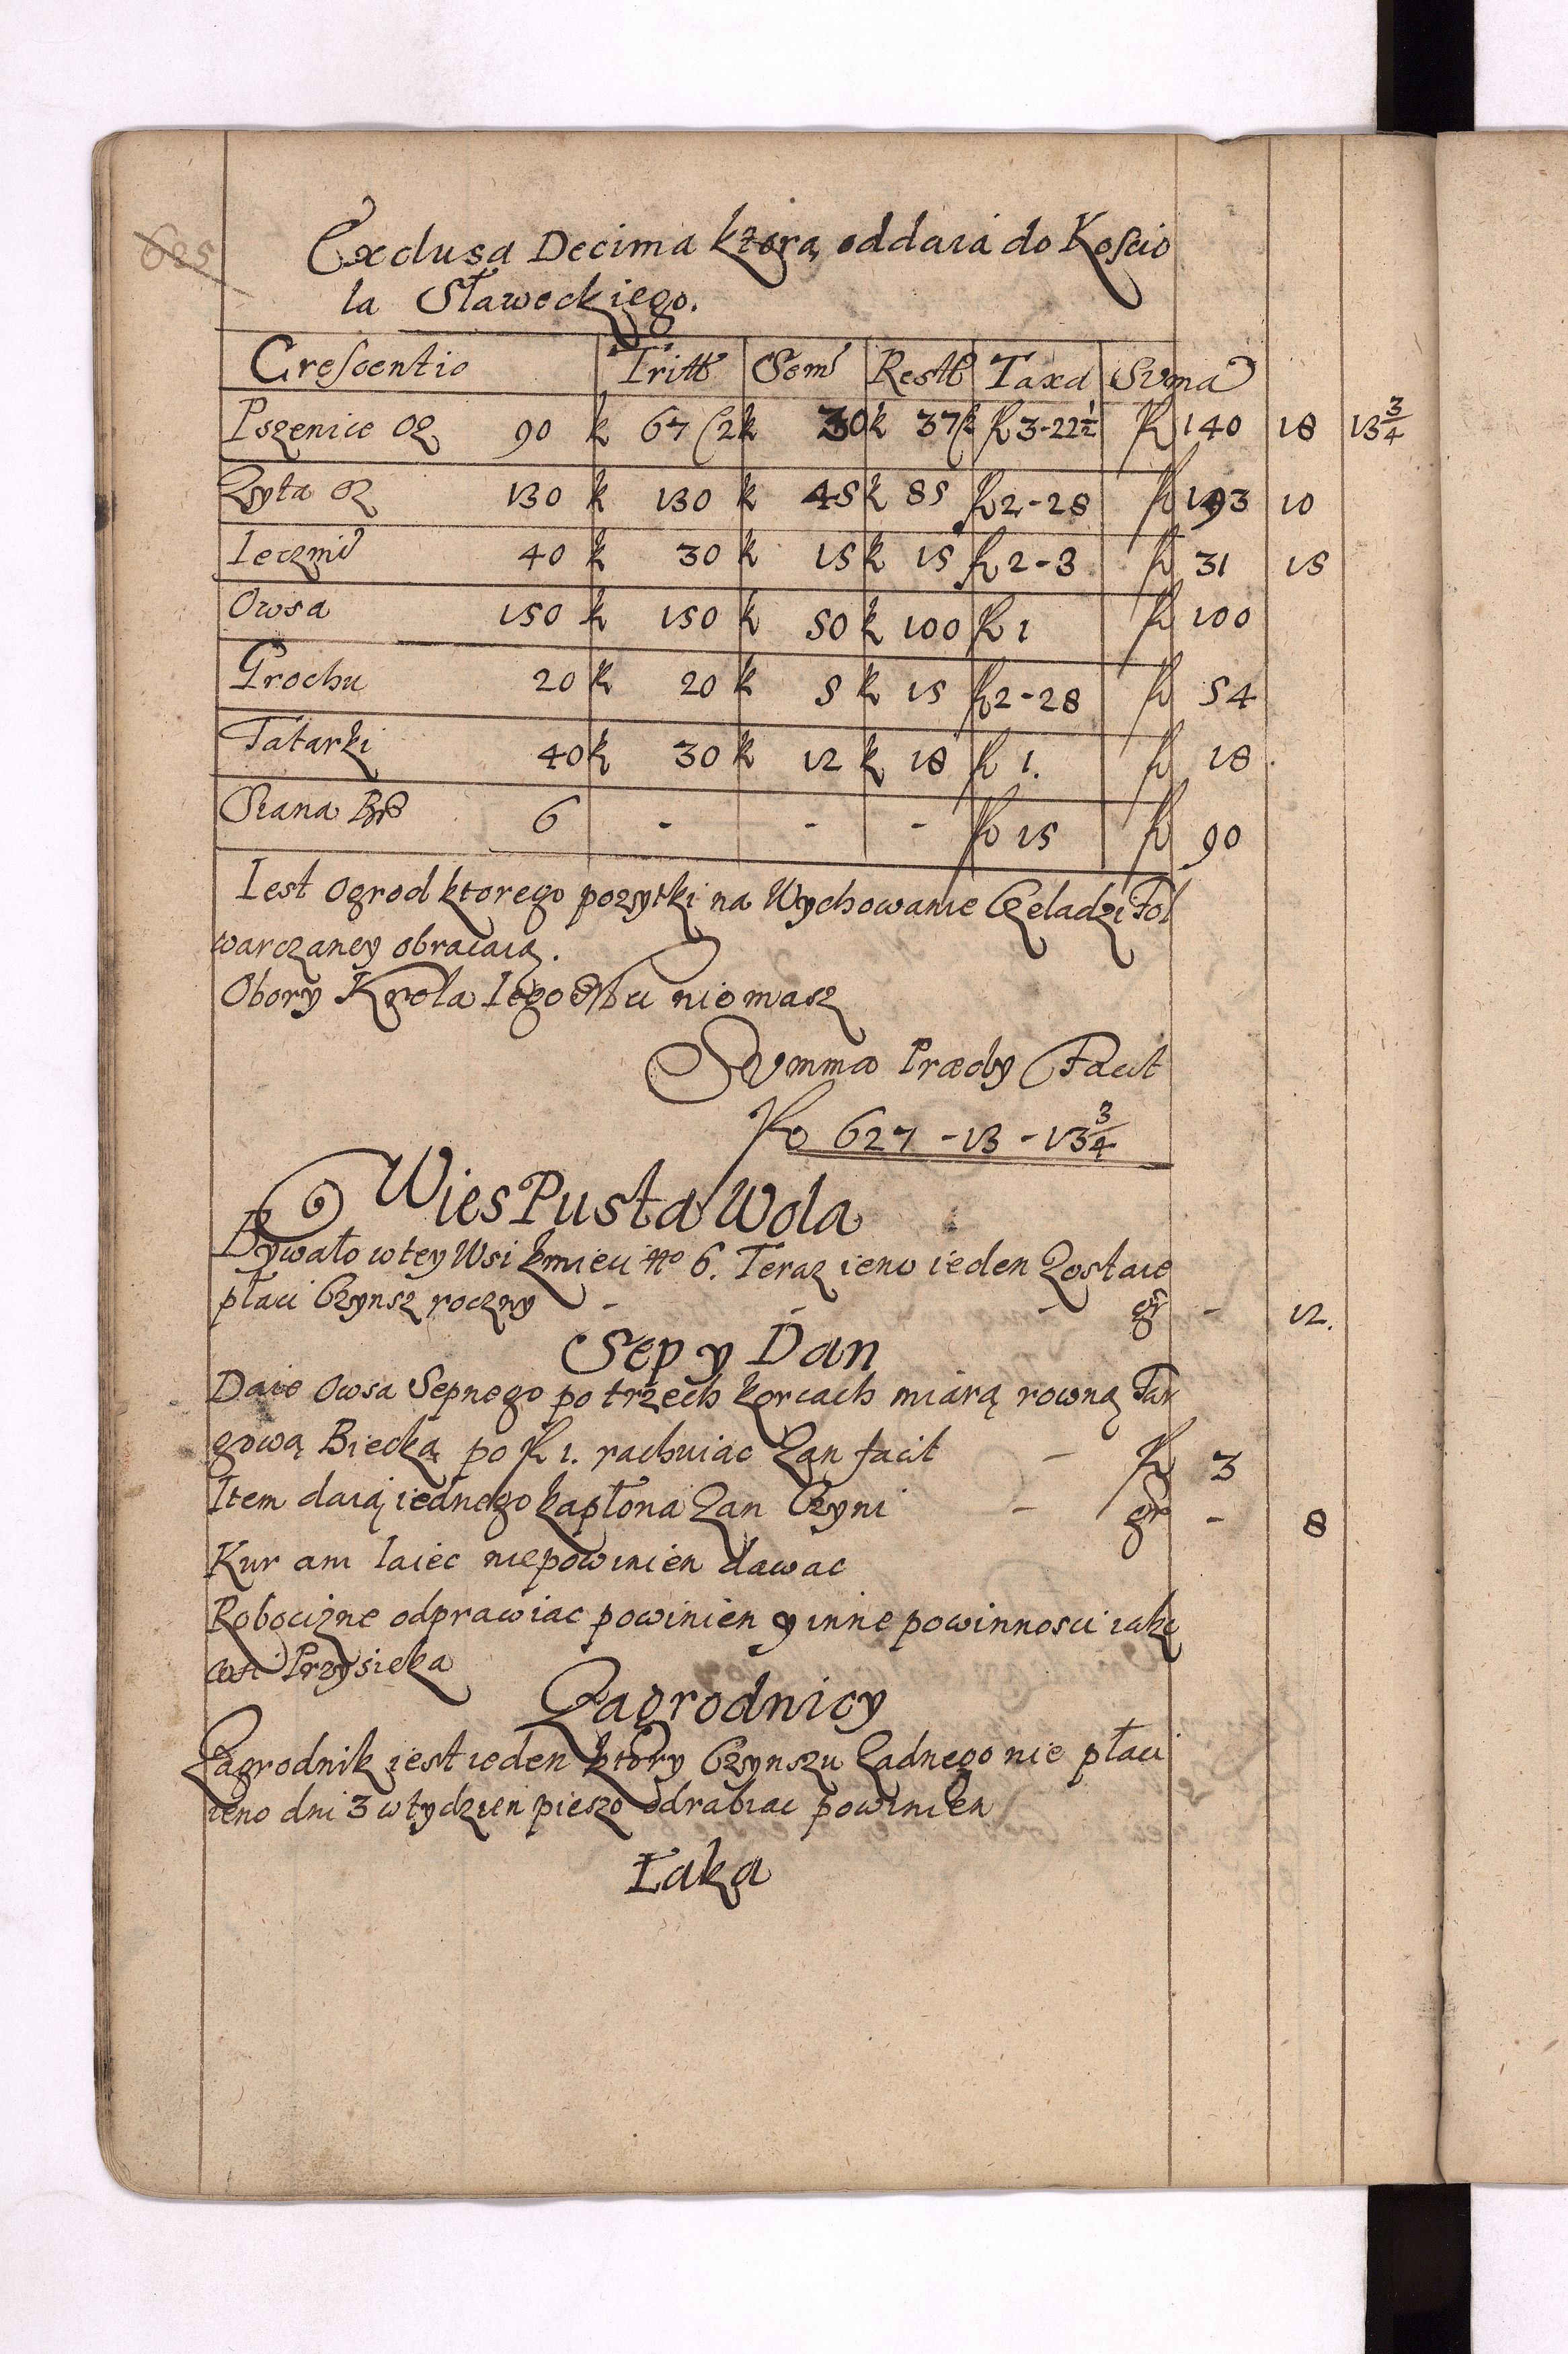 625
Exclusa Decima ktorą oddaia do Koscio
la Sławeckiego.
Crescentio Tritt Sem Restt Taxa Suma
Pszenice oz 90 k 67 (2 k 30 k 37 f 3-22½ f 140 18 13¾
Zyta oz 130 k 130 k 45 k 85 f 2-28 f 193 10
Ieczmi 40 k 30 k 15 k 15 f 2-3 f 31 15
Owsa 150 k 150 k 50 k 100 f 1 f 100
Grochu 20 k 20 k 5 k 15 f 2-28 f 54
Tatarki 40 k 30 k 12 k 18 f 1. f 18
Siana 6 - - - f 15 f 90
Iest Ogrod ktorego pozytki na Wychowanie Czeladzi Fol
warczaney obracaią.
Obory Krola Iego niemasz
Summa Prædy Facit
f 627 - 13 - 13¾
Wies Pusta Wola
Bywało wtey Wsi kmieci no 6. Teraz ieno ieden Zostaie
płaci Czynsz roczny - - - gr - 12.
Sep y Dan
Daie Owsa Sepnego po trzech korcach miarą rowną Tar
gową Biecką po f 1. rachuiac Zan facit - f 3
Item daią iednego kapłona Zan Czyni - gr - 8
Kur ani Iaiec niepowinien dawac
Robocizne odprawiac powinien y inne powinnosci iako
wsi Przysieka
Zagrodnicy
Zagrodnik iest ieden ktory Czynszu Zadnego nie płaci
ieno dni 3 wtydzien pieszo odrabiac powinien
Łaka